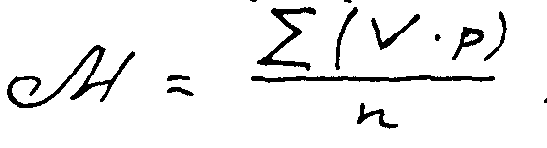 M = Σ(V·p)/n.